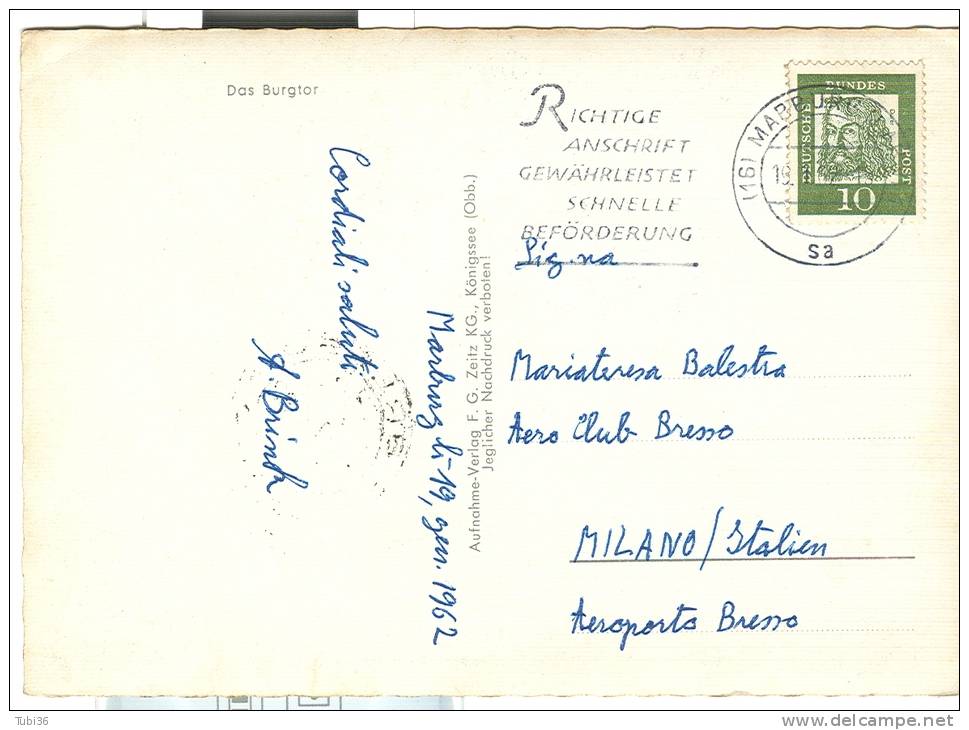 Das Burgtor
Cordiali saluti
A. Brinck
Marburg li 19, gen. 1962
Aufnahme-Verlag F. G. Zeitz KG., Königssee (Obb.)
Jeglicher Nachdruck verboten!
RICHTIGE
ANSCHRIFT
GEWÄHRLEISTET
SCHNELLE
BEFÖRDERUNG
(16) MARBURG
sa
DEUTSCHE
BUNDES
POST
10
Sig.na
Mariateresa Balestra
Aero Club Bresso
MILANO/Italien
Aeroporto Bresso
Tubi36
www.delcampe.net